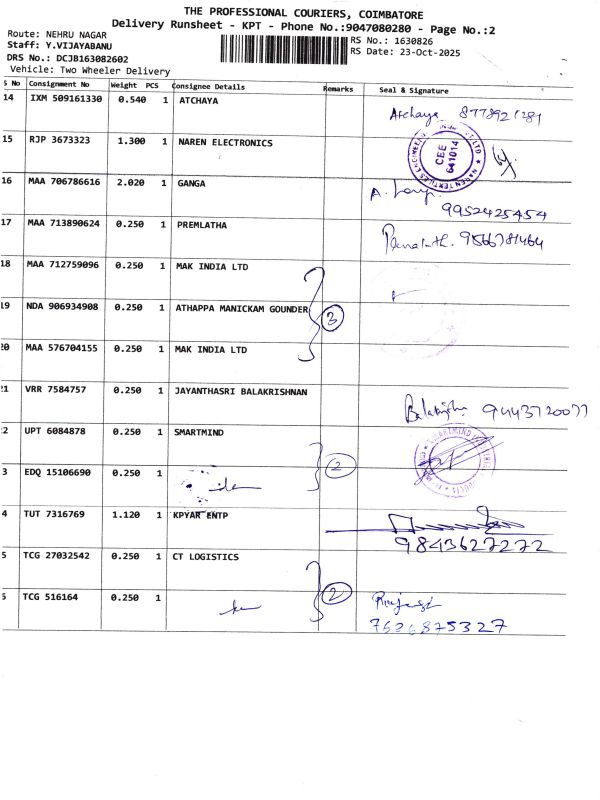 THE PROFESSIONAL COURIERS, COIMBATORE
Delivery Runsheet - KPT - Phone No.:9047080280 - Page No.:2
Route: NEHRU NAGAR
Staff: Y.VIJAYABANU
DRS No: DCJB163082602
Vehicle: Two Wheeler Delivery
RS No.: 1630826
RS Date: 23-Oct-2025
S No Consignment No Weight PCS Consignee Details Remarks Seal & Signature
14 IXM 509161330 0.540 1 ATCHAYA Atchaya 8778921281
15 RJP 3673323 1.300 1 NAREN ELECTRONICS
NAREN TEXTILES ENGINEERS
CEE
641014
16 MAA 706786616 2.020 1 GANGA
9952425454
17 MAA 713890624 0.250 1 PREMLATHA 9566781464
18 MAA 712759096 0.250 1 MAK INDIA LTD
19 NDA 906934908 0.250 1 ATHAPPA MANICKAM GOUNDER 3
20 MAA 576704155 0.250 1 MAK INDIA LTD
21 VRR 7584757 0.250 1 JAYANTHASRI BALAKRISHNAN
9443720077
2 UPT 6084878 0.250 1 SMARTMIND
SMARTMIND
3 EDQ 15106690 0.250 1 2
4 TUT 7316769 1.120 1 KPYAR ENTP
9843627272
5 TCG 27032542 0.250 1 CT LOGISTICS
6 TCG 516164 0.250 1 2
7526875327